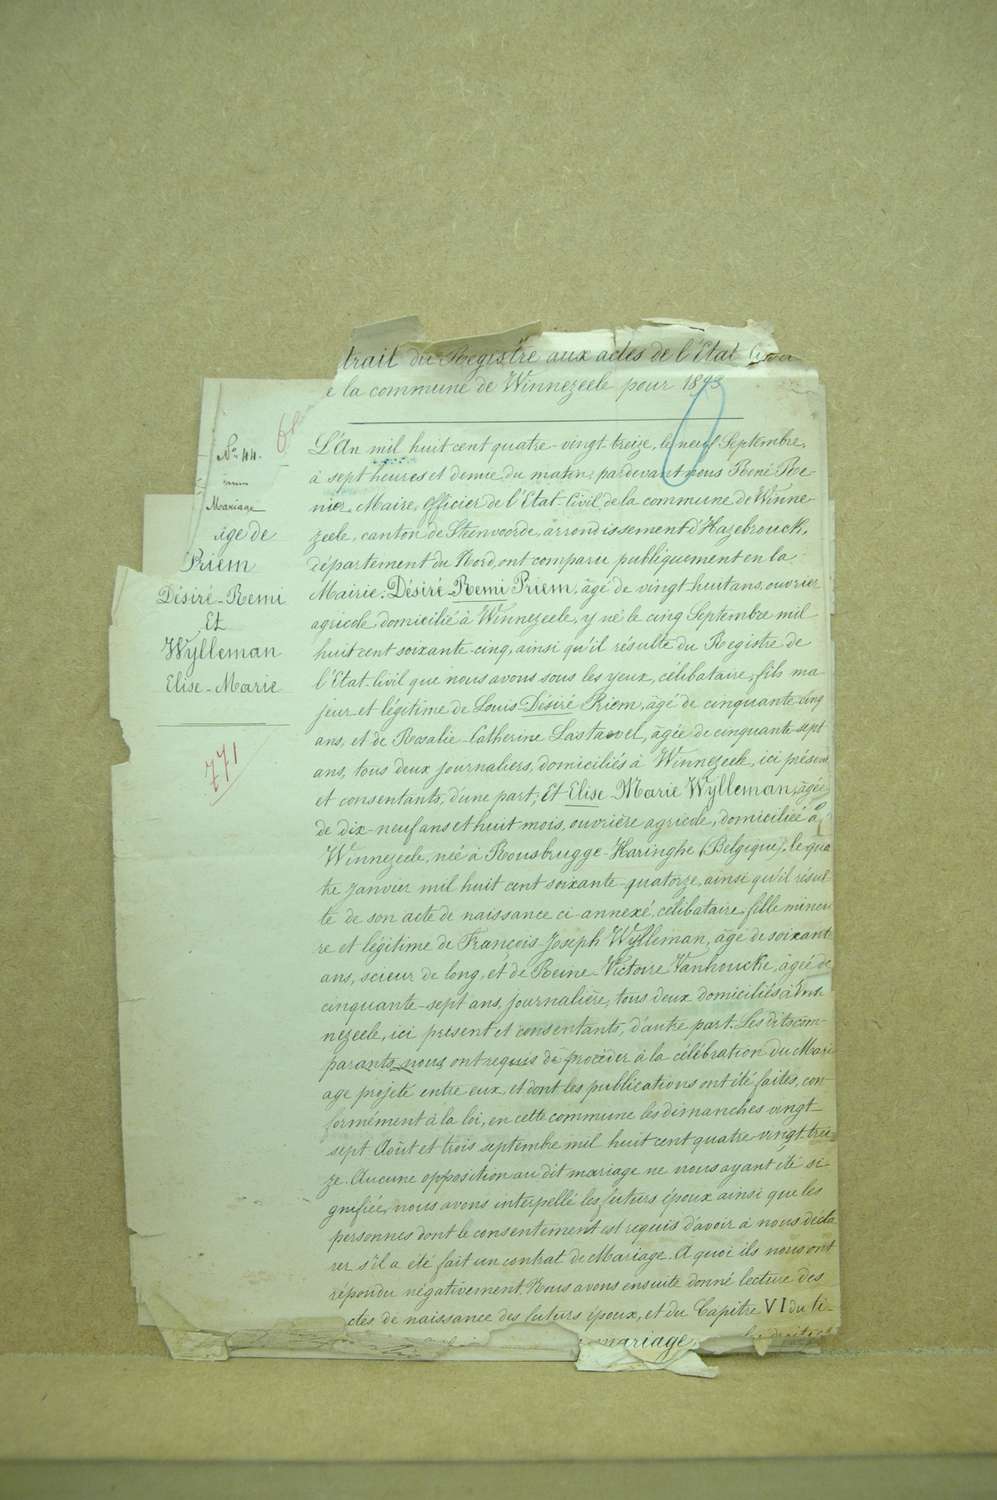 trait du Registre aux actes de l'Etat Civil
e la commune de Winnezeele pour 1893
N° 44.
Mariage
age de
Priem
Désiré-Remi
Et
Wylleman
Elise-Marie
771
L'An mil huit cent quatre-vingt treize, le neuf Septembre,
à sept heures et demie du matin, pardevant nous René Re
nier, Maire, Officier de l'Etat-Civil de la commune de Winne-
zeele, canton de Steenvoorde, arrondissement d'Hazebrouck,
département du Nord, ont comparu publiquement en la
Mairie, Désiré-Remi Priem, âgé de vingt huit ans, ouvrier
agricole domicilié à Winnezeele, y né le cinq Septembre mil
huit cent soixante-cinq, ainsi qu'il résulte du Registre de
l'Etat-Civil que nous avons sous les yeux, célibataire, fils ma
jeur et légitime de Louis-Désiré Priem, âgé de cinquante cinq
ans, et de Rosalie-Catherine Lastavel, âgée de cinquante-sept
ans, tous deux journaliers, domiciliés à Winnezeele, ici présents
et consentants, d'une part; Et Elise Marie Wylleman, âgée
de dix-neuf ans et huit mois, ouvrière agricole, domiciliée à
Winnezeele, née à Rousbrugge-Haringhe (Belgique), le qua
tre Janvier mil huit cent soixante-quatorze, ainsi qu'il résul
te de son acte de naissance ci-annexé, célibataire, fille mineu
re et légitime de François Joseph Wylleman, âgé de soixante
ans, scieur de long, et de Reine-Victoire Vanhoucke, âgée de
cinquante-sept ans, journalière, tous deux domiciliés à Win
nezeele, ici présent et consentants, d'autre part. Les dits com-
parants nous ont requis de procéder à la célébration du Mari
age projeté entre eux, et dont les publications ont été faites, con
formément à la loi, en cette commune les dimanches vingt-
sept Août et trois septembre mil huit cent quatre vingt trei
ze. Aucune opposition au dit mariage ne nous ayant été si
gnifiée, nous avons interpellé les futurs époux ainsi que les
personnes dont le consentement est requis d'avoir à nous décla
rer s'il a été fait un contrat de Mariage. A quoi ils nous ont
répondu négativement. Nous avons ensuite donné lecture des
ctes de naissance des futurs époux, et du Capitre VI du ti-
mariage